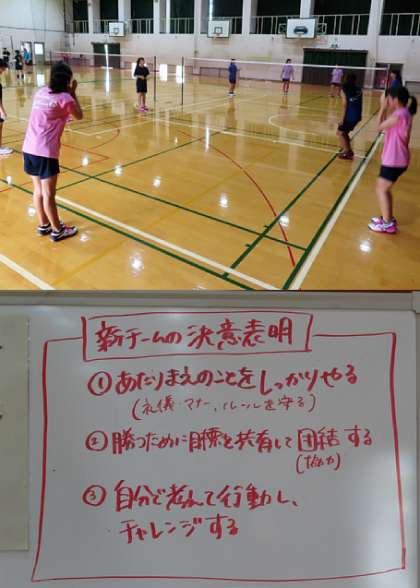 新チームの決意表明
① あたりまえのことをしっかりやる
(礼儀・マナー、ルールを守る)
② 勝つために目標を共有して団結する
(協力)
③ 自分で考えて行動し、
チャレンジする